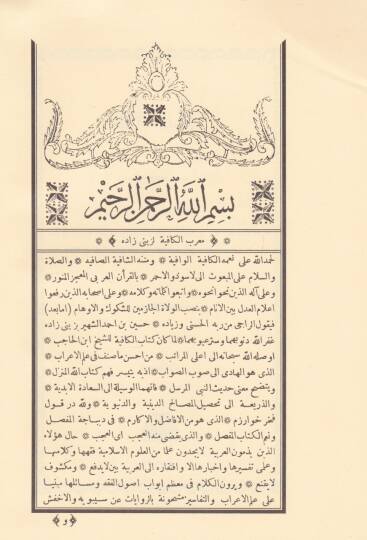 بسم الله الرحمن الرحيم
معرب الكافية لزينى زاده
الحمد لله على نعمه الكافية الوافية ومننه الشافية الصافيه والصلاة
والسلام على المبعوث الى الاسود والاحمر بالقرآن العربى المعجز المنور
وعلى آله الذين نحوا نحوه واتبعوا كلماته وكلامه وعلى اصحابه الذين رفعوا
اعلام العدل بين الانام بنصب الولاة الجازمين للشكوك والاوهام (امابعد)
فيقول الراجى من ربه الحسنى وزياده حسين بن احمد الشهير بزينى زاده
غفر الله ذنوبهما وستر عيوبهما لما كان كتاب الكافية للشيخ ابن الحاجب
اوصله الله سبحانه الى اعلى المراتب من احسن ما صنف فى علم الاعراب
الذى هو الهادى الى صوب الصواب اذبه يتيسر فهم كتاب الله المنزل
ويتضح معنى حديث النبى المرسل فانهما الوسيلة الى السعادة الابدية
والذريعة الى تحصيل المصالح الدينية والدنيوية ولله در قول
فخر خوارزم الذى هو من الافاضل والاكارم فى ديباجة المفصل
ونم الكتاب المفصل والذى يقضى منه العجب اى العجب حال هؤلاء
الذين يذمون العربية لايجدون علما من العلوم الاسلامية فقهها وكلامها
وعلمى تفسيرها واخبارها الا وافتقاره الى العربية بين لايدفع ومكشوف
لايقنع ويرون الكلام فى معظم ابواب اصول الفقه ومسائلها مبنيا
على علم الاعراب والتفاسير مشحونة بالروايات عن سيبويه والاخفش